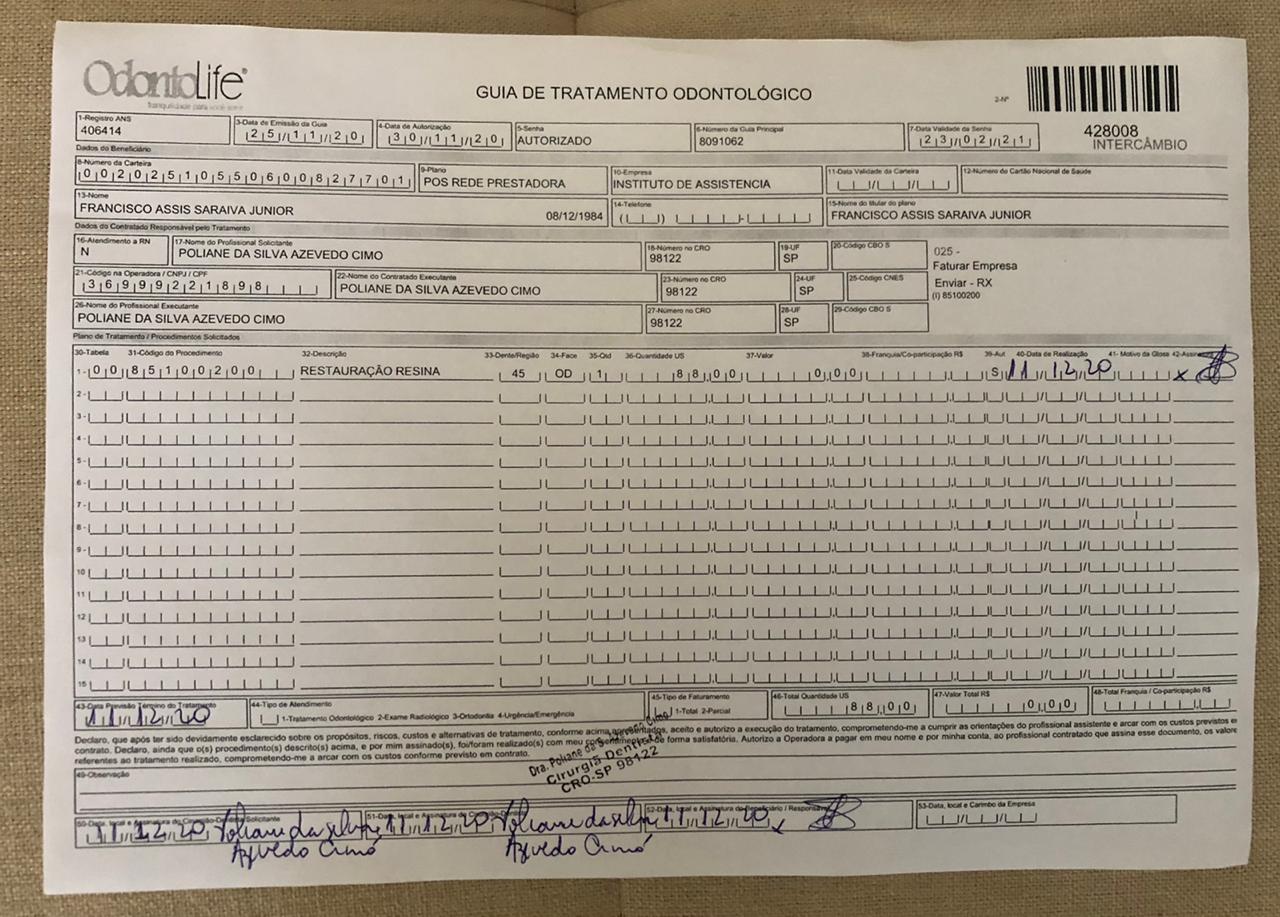 OdontoLife®
Tranquilidade para você sorrir
GUIA DE TRATAMENTO ODONTOLÓGICO
2-Nº
428008
INTERCÂMBIO
1-Registro ANS 3-Data de Emissão da Guia 4-Data de Autorização 5-Senha 6-Número da Guia Principal 7-Data Validade da Senha
406414 25/11/20 30/11/20 AUTORIZADO 8091062 23/02/21
Dados do Beneficiário
8-Número da Carteira 9-Plano 10-Empresa 11-Data Validade da Carteira 12-Número do Cartão Nacional de Saúde
00202510550600827701 POS REDE PRESTADORA INSTITUTO DE ASSISTENCIA
13-Nome 14-Telefone 15-Nome do titular do plano
FRANCISCO ASSIS SARAIVA JUNIOR 08/12/1984 FRANCISCO ASSIS SARAIVA JUNIOR
Dados do Contratado Responsável pelo Tratamento
16-Atendimento a RN 17-Nome do Profissional Solicitante 18-Número no CRO 19-UF 20-Código CBO S
N POLIANE DA SILVA AZEVEDO CIMO 98122 SP
025 -
Faturar Empresa
Enviar - RX
(I) 85100200
21-Código na Operadora / CNPJ / CPF 22-Nome do Contratado Executante 23-Número no CRO 24-UF 25-Código CNES
36999221898 POLIANE DA SILVA AZEVEDO CIMO 98122 SP
26-Nome do Profissional Executante 27-Número no CRO 28-UF 29-Código CBO S
POLIANE DA SILVA AZEVEDO CIMO 98122 SP
Plano de Tratamento / Procedimentos Solicitados
30-Tabela 31-Código do Procedimento 32-Descrição 33-Dente/Região 34-Face 35-Qtd 36-Quantidade US 37-Valor 38-Franquia/Co-participação R$ 39-Aut 40-Data de Realização 41- Motivo da Glosa 42-Assin
1- 00 85100200 RESTAURAÇÃO RESINA 45 OD 1 88,00 0,00 S 11/12/20 x
2-
3-
4-
5-
6-
7-
8-
9-
10
11
12
13
14
15
43-Data Previsão Término do Tratamento 44-Tipo de Atendimento 45-Tipo de Faturamento 46-Total Quantidade US 47-Valor Total R$ 48-Total Franquia / Co-participação R$
11/12/20 1-Tratamento Odontológico 2-Exame Radiológico 3-Ortodontia 4-Urgência/Emergência 1-Total 2-Parcial 88,00 0,00
Declaro, que após ter sido devidamente esclarecido sobre os propósitos, riscos, custos e alternativas de tratamento, conforme acima apresentados, aceito e autorizo a execução do tratamento, comprometendo-me a cumprir as orientações do profissional assistente e arcar com os custos previstos e
contrato. Declaro, ainda que o(s) procedimento(s) descrito(s) acima, e por mim assinado(s), foi/foram realizado(s) com meu consentimento e de forma satisfatória. Autorizo a Operadora a pagar em meu nome e por minha conta, ao profissional contratado que assina esse documento, os valore
referentes ao tratamento realizado, comprometendo-me a arcar com os custos conforme previsto em contrato.
Dra. Poliane da S. Azevedo Cimo
Cirurgiã Dentista
CRO-SP 98122
49-Observação
50-Data, local e Assinatura do Cirurgião-Dentista Solicitante 51-Data, local e Assinatura do Cirurgião-Dentista 52-Data, local e Assinatura do Beneficiário / Responsável 53-Data, local e Carimbo da Empresa
11/12/20 Poliane da Silva 11/12/20 Poliane da Silva 11/12/20 x
Azevedo Cimó Azevedo Cimó